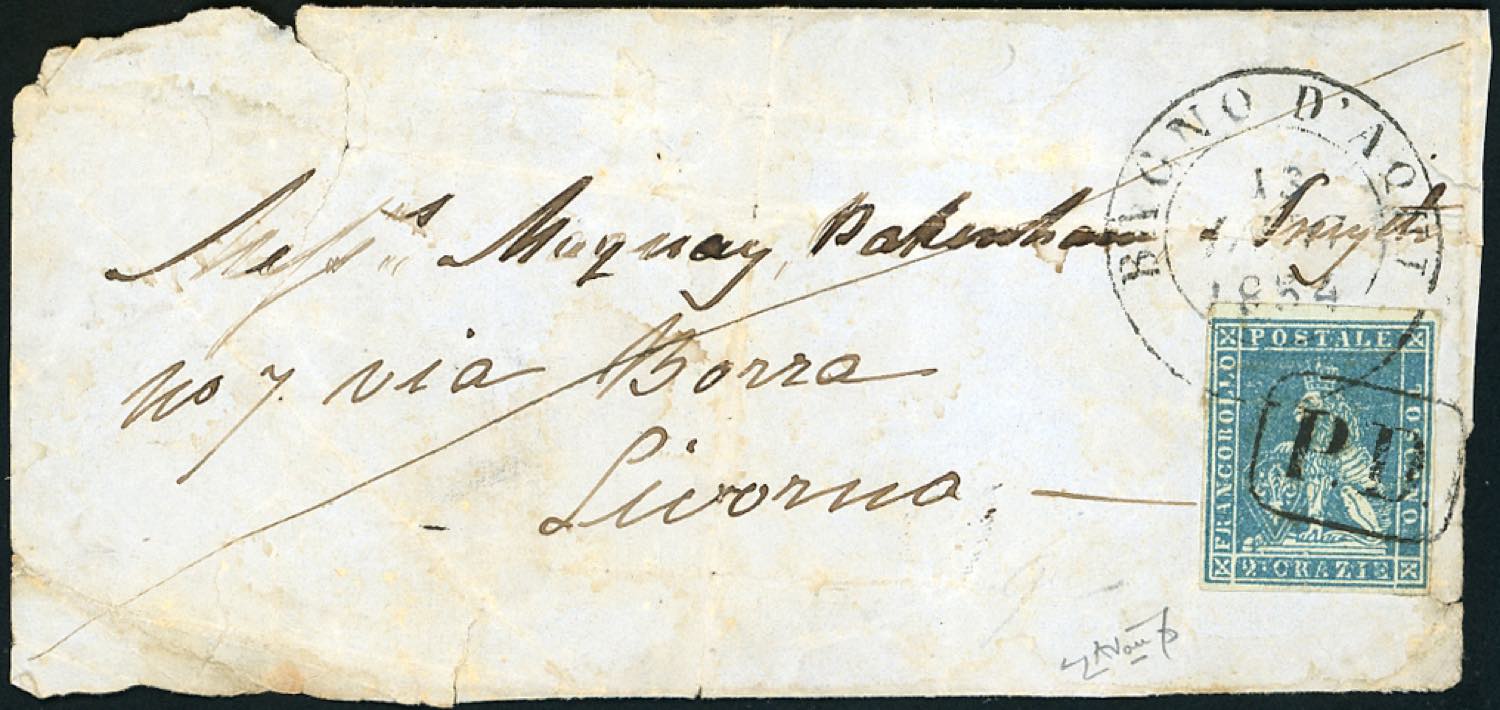 BAGNO D'AQUI
13
1854
Mess.rs Maquay, Pakenham & Smyth
No 7. via Borra
Livorno.
FRANCOBOLLO
POSTALE
2 CRAZIE
P.D.